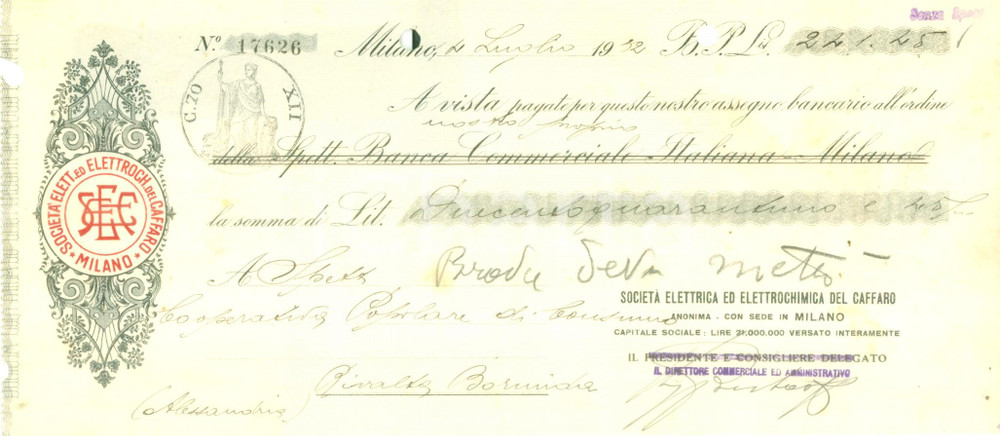 Senza Spese
Nº 17626 Milano, 4 Luglio 1932 B. P. Lit. 241.25
C. 70 XII
A vista pagate per questo nostro assegno bancario all'ordine
nostro proprio
della Spett. Banca Commerciale Italiana - Milano
la somma di Lit. Duecentoquarantuno e 25
SOCIETÀ ELETT. ED ELETTROCH. DEL CAFFARO
* MILANO *
A Spett
Cooperativa Popolare di Consumo
Rivalta Bormida
(Alessandria)
SOCIETÀ ELETTRICA ED ELETTROCHIMICA DEL CAFFARO
ANONIMA - CON SEDE IN MILANO
CAPITALE SOCIALE: LIRE 21.000.000 VERSATO INTERAMENTE
IL PRESIDENTE E CONSIGLIERE DELEGATO
IL DIRETTORE COMMERCIALE ED AMMINISTRATIVO